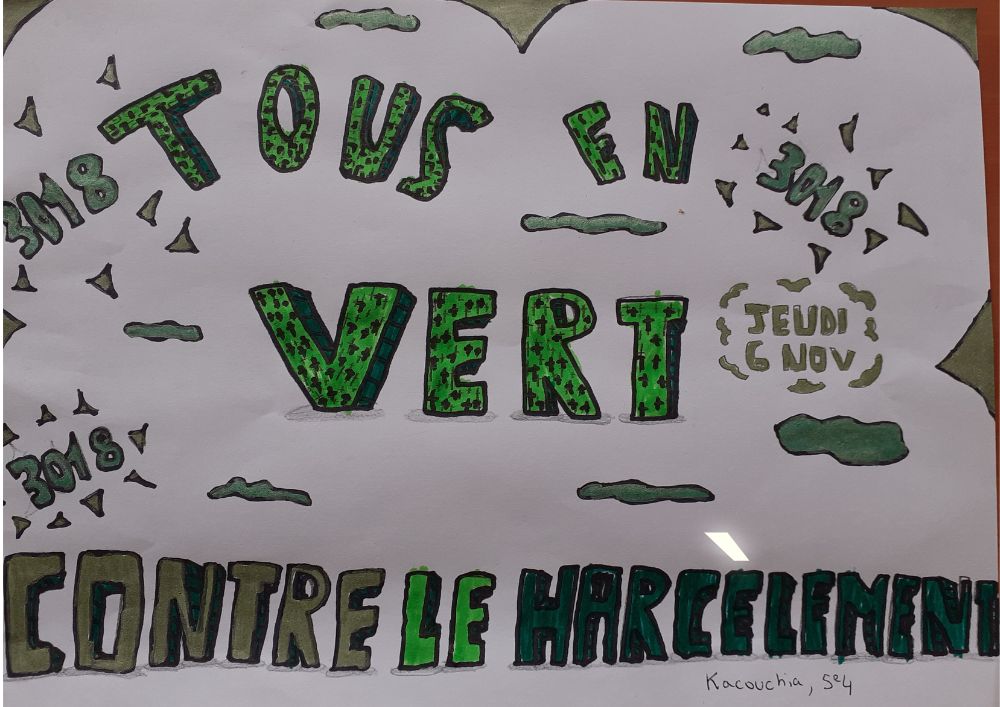 TOUS EN
3018
3018
VERT
JEUDI
6 NOV
3018
CONTRE LE HARCELEMENT
Kacouchia, 5e4